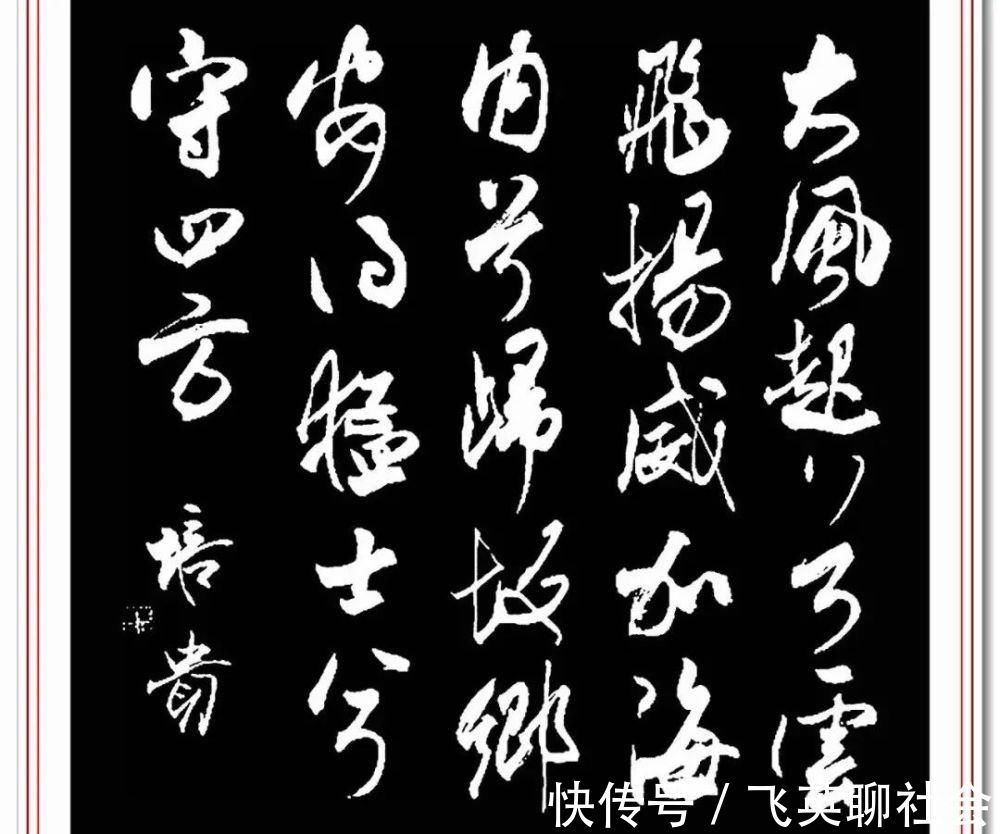 大風起兮雲
飛揚威加海
内兮歸故鄉
安得猛士兮
守四方
培貴
快传号 / 飞英聊社会